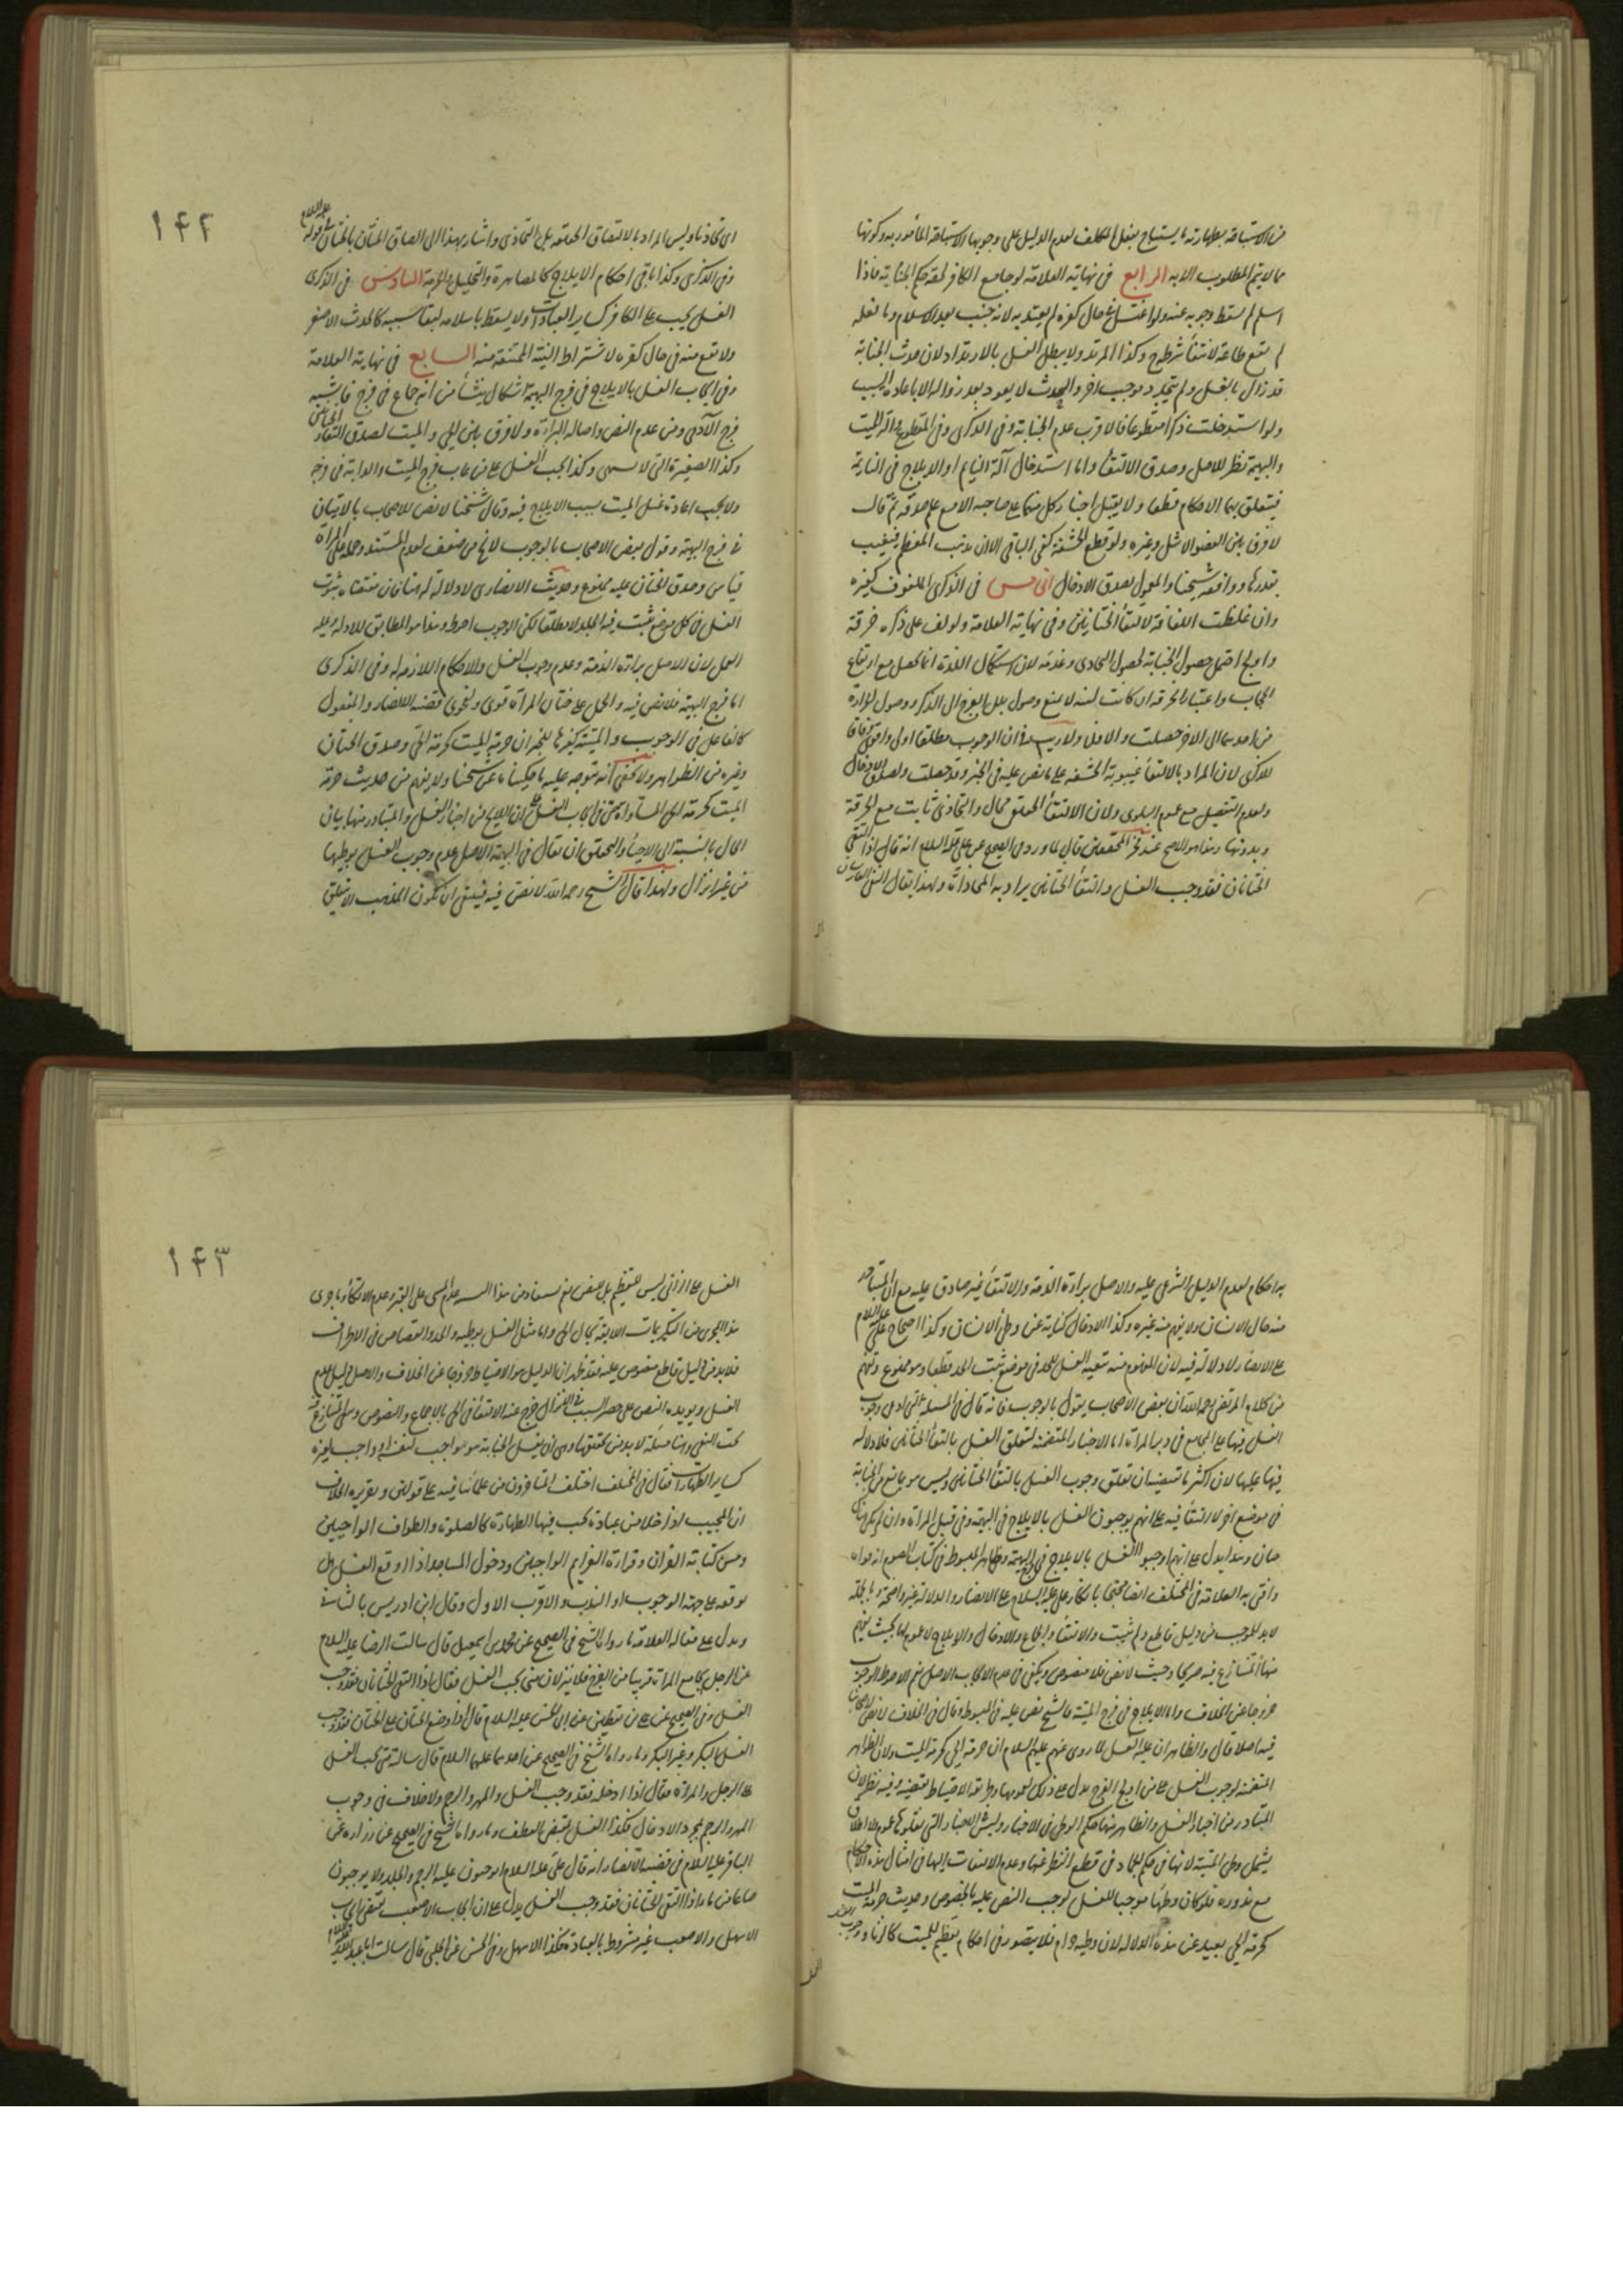 من الاستباحة بطهارته ما يستباح بفعل المكلف لعدم الدليل على وجوبها الاستباحة المأمور به وكونها
مما لا يتم المطلوب الا به الرابع في نهاية العلامة لو جامع الكافر لحقه حكم الجنابة فاذا
اسلم لم يسقط وجوبه عنه ولو اغتسل في حال كفره لم يعتد به لانه جنب بعد الاسلام وما فعله
لم يقع طاعة لانتفاء شرطه وكذا المرتد ولا يبطل الغسل بالارتداد لان حدث الجنابة
قد زال بالغسل ولم يتجدد موجب اخر والحدث لا يعود بعد زواله الا باعادة السبب
ولو استدخلت ذكرا مقطوعا فالاقرب عدم الجنابة وفي الذكرى وفي المقطوع وآلة الميت
والبهيمة نظر للاصل وصدق الالتقاء واما استدخال آلة النائم او الايلاج في النائمة
فيتعلق بهما الاحكام قطعا ولا يقبل اخبار كل منهما على صاحبه الا مع علم صدقه ثم قال
لا فرق بين العضو الاشل وغيره ولو قطع الحشفة كفى الباقي الا ان يذهب المعظم فيغيب
بقدرها ووافقه شيخنا والمعول بصدق الادخال الخامس في الذكرى الملفوف كغيره
وان غلظت اللفافة لالتقاء الختانين وفي نهاية العلامة ولو لف على ذكره خرقة
واولج احتمل حصول الجنابة لحصول التحاذي وعدمه لان استكمال اللذة انما يحصل مع ارتفاع
الحجاب واعتبار الخرقة ان كانت لينة لا تمنع وصول بلل الفرج الى الذكر ووصول الحرارة
من احدهما الى الاخر حصلت والا فلا ولا ريب في ان الوجوب مطلقا اولى وافق وفاقا
للذكرى لان المراد بالالتقاء غيبوبة الحشفة على ما نص عليه في الخبر وقد حصلت ولصدق الادخال
ولعدم التفصيل مع عموم البلوى ولان الالتقاء الحقيقي محال والتحاذي ثابت مع الخرقة
وبدونها وهذا هو الاصح عند فخر المحققين قال لما ورد في الصحيح عن علي عليه السلام انه قال اذا التقى
الختانان فقد وجب الغسل والتقاء الختانين يراد به المحاذاة ولهذا يقال التقى الفارسان
١٤٢
اي تحاذيا وليس المراد بالالتصاق الحقيقة بل التحاذي واشار بهذا الى الصاق الختان بالختان في قوله عليه السلام
وفي الذكرى وكذا باقي احكام الايلاج كالمصاهرة والتحليل والحرمة السادس في الذكرى
الغسل يجب على الكافر كساير العبادات ولا يسقط باسلامه لبقاء سببه كالحدث الاصغر
ولا تقع منه في حال كفره لاشتراط النية الممتنعة منه السابع في نهاية العلامة
وفي ايجاب الغسل بالايلاج في فرج البهيمة اشكال ينشأ من انه جماع في فرج فاشبه
فرج الآدمي ومن عدم النص واصالة البراءة ولا فرق بين الحي والميت لصدق التقاء الختانين
وكذا الصغيرة التي لا تشتهى وكذا يجب الغسل على من غاب فرج الميت والدابة في فرجه
ولا يجب اعادة غسل الميت بسبب الايلاج فيه وقال شيخنا لا نص للاصحاب بالاتيان
في فرج البهيمة وقول بعض الاصحاب بالوجوب لا يخ من ضعف لعدم المستند وحمله على المرأة
قياس وصدق الختان عليه ممنوع وحديث الانصاري لا دلالة له
الغسل في كل موضع ثبت فيه الحد لا مطلقا لكن الوجوب احوط وهذا هو المطابق للادلة وعليه
العمل لان الاصل براءة الذمة وعدم وجوب الغسل والاحكام اللازمة له وفي الذكرى
اما فرج البهيمة فلا نص فيه والحمل على ختان المرأة قوي ولفحوى قضية الانصار والمفعول
كالفاعل في الوجوب والميتة كغيرها للخبر ان حرمة الميت كحرمة الحي وصدق الختان
وغيره من الظواهر ولا يخفى انه يتوجه عليه ما حكيناه عن شيخنا ولا يفهم من حديث حرمة
الميت كحرمة الحي المساواة حتى في ايجاب الغسل على ان اللايح من اخبار الغسل والمتبادر منها بيان
الحال بالنسبة الى الاحياء والتحقيق ان يقال في البهيمة الاصل عدم وجوب الغسل بوطئها
من غير انزال ولهذا قال الشيخ رحمه الله لا نص فيه فينبغي ان يكون المذهب الا يتعلق
به احكام لعدم الدليل الشرعي عليه والاصل براءة الذمة والالتقاء غير صادق عليه مع ان المتبادر
منه حال الانسان ولا يفهم منه غيره وكذا الادخال كناية عن وطي الانسان وكذا احتجاج علي عليه السلام
على الانصار لا دلالة فيه لان المفهوم منه تبعية الغسل للحد في موضع ثبت الحد قطعا وهو ممنوع وتفهم
من كلام المرتضى رحمه الله ان بعض الاصحاب يقول بالوجوب فانه قال في المسئلة التي ادعى وجوب
الغسل فيها على المجامع في دبر المرأة اما الاخبار المتضمنة لتعلق الغسل بالتقاء الختانين فلا دلالة
فيها عليها لان اكثر ما تقتضيان تعلق وجوب الغسل بالتقاء الختانين وليس هو بمانع من الجنابة
في موضع اخر لا التقاء فيه على انهم يوجبون الغسل بالايلاج في البهيمة وفي قبل المرأة وان لم يكن هناك
ختان وهذا يدل على انهم اوجبوا الغسل بالايلاج في فرج البهيمة وظاهر المبسوط في كتاب الصوم انه قواه
وافتى به العلامة في المختلف ايضا محتجا بانكار علي عليه السلام على الانصار والدلالة غير واضحة وبالجملة
لا بد للوجوب من دليل قاطع ولم يثبت والالتقاء والجماع والادخال والايلاج لا عموم لها بحيث يفهم
منها المتنازع فيه صريحا وحيث لا نص فلا منصوص ويكفي في عدم الايجاب الاصل نعم الاحوط الوجوب
خروجا عن الخلاف واما الايلاج في فرج الميتة فالشيخ نص عليه في المبسوط وقال في الخلاف لا نص لاصحابنا
فيه اصلا قال والظاهر ان عليه الغسل لما روي عنهم عليهم السلام ان حرمة الحي كحرمة الميت ولان الظواهر
المتضمنة لوجوب الغسل على من اولج الفرج يدل على ذلك لعمومها وطريقة الاحتياط تقتضيه وفيه نظر لان
المتبادر من اخبار الغسل والظاهر منها حكم الوطي في الاحياء وليس للاخبار التي نقلوها عموم بلا اطلاق
يشمل وطي الميتة لانها في حكم الجماد في قطع النظر عنها وعدم الالتفات اليها في امثال هذه الاحكام
مع ندوره فلو كان وطئها موجبا للغسل لوجب النص عليه بالخصوص وحديث حرمة الميت
كحرمة الحي بعيد عن هذه الدلالة لان وطيه حرام فلا يتصور في احكام تعظيم للميت كالزنا ووجوب
١٤٣
الغسل على الزاني ليس للتعظيم بل لنص
فلا بد في دليل قاطع منصوص عليه فقد ظهر ان الدليل هو الاحتياط وخروجا عن الخلاف والاصل دليل عدم
الغسل ويؤيده النص على حصر السبب في الانزال خرج عنه الالتقاء في الحي بالاجماع والنصوص وبقي المتنازع فيه
تحت النفي وهنا مسئلة لا بد من تحقيقها وهي ان غسل الجنابة هو واجب لنفسه او واجب لغيره
كساير الطهارات فقال في المختلف اختلف المتأخرون من علمائنا فيه على قولين وتقريره الخلاف
ان المجنب اذا خلا من عبادة تجب فيها الطهارة كالصلوة والطواف الواجبين
ومس كتابة القران وقراءة العزايم الواجبين ودخول المساجد اذا اوقع الغسل هل
يوقعه على جهة الوجوب او الندب والاقرب الاول وقال ابن ادريس بالثاني
ويدل على مقالة العلامة ما رواه الشيخ في الصحيح عن محمد بن اسمعيل قال سالت الرضا عليه السلام
عن الرجل يجامع المرأة قريبا من الفرج فلا ينزلان متى يجب الغسل فقال اذا التقى الختانان فقد وجب
الغسل وفي الصحيح عن علي بن يقطين عن ابي الحسن عليه السلام قال اذا وضع الختان على الختان فقد وجب
الغسل البكر وغير البكر وما رواه الشيخ في الصحيح عن احدهما عليهما السلام قال سالته متى يجب الغسل
على الرجل والمرأة فقال اذا ادخله فقد وجب الغسل والمهر والرجم ولا خلاف في وجوب
المهر والرجم بمجرد الادخال فكذا الغسل بمقتضى العطف وما رواه الشيخ في الصحيح عن زرارة عن
الباقر عليه السلام في قضية الانصار انه قال علي عليه السلام اتوجبون عليه الرجم والجلد ولا توجبون
صاعا من ماء اذا التقى الختانان فقد وجب الغسل يدل على ان ايجاب الاصعب يقتضي ايجاب
الاسهل والاصعب غير مشروط بالعبادة فكذا الاسهل وفي الحسن عن الحلبي قال سالت ابا عبد الله عليه السلام